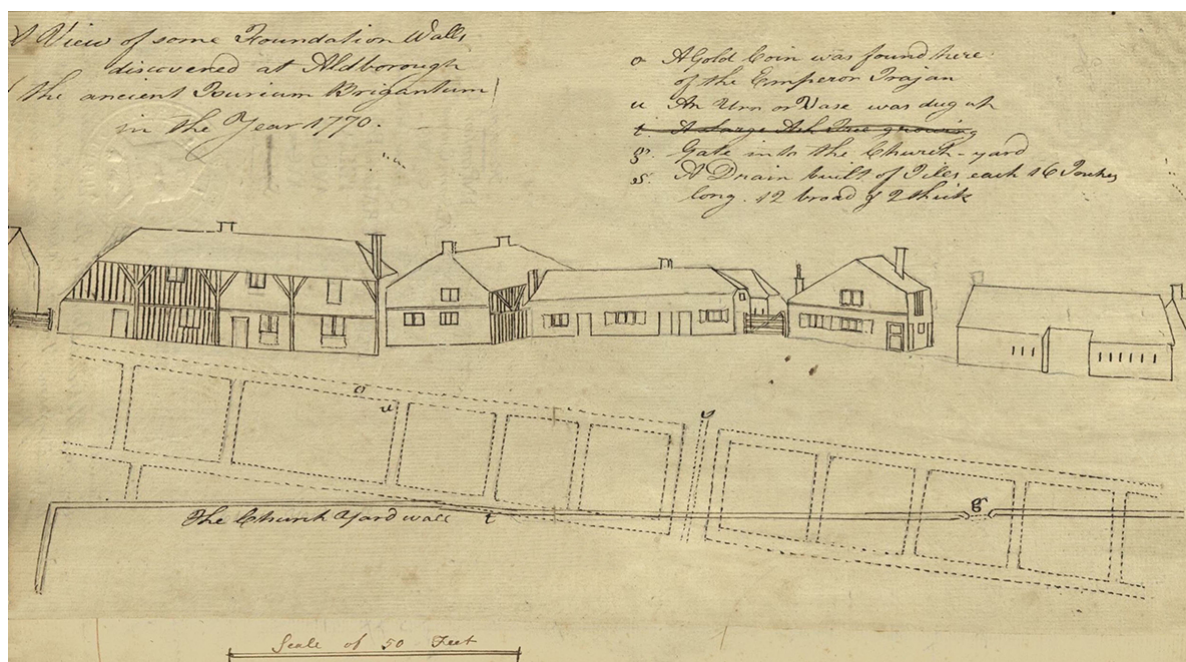 A View of some Foundation Walls
discovered at Aldborough
(the ancient Isurium Brigantum)
in the Year 1770.
o A Gold Coin was found here
of the Emperor Trajan
u An Urn or Vase was dug up
t. A large Ash Tree growing
g. Gate into the Church-yard
s. A Drain built of Tiles each 16 Inches
long. 12 broad & 2 thick
o
u
s
g
The Church Yard wall
t
Scale of 50 Feet